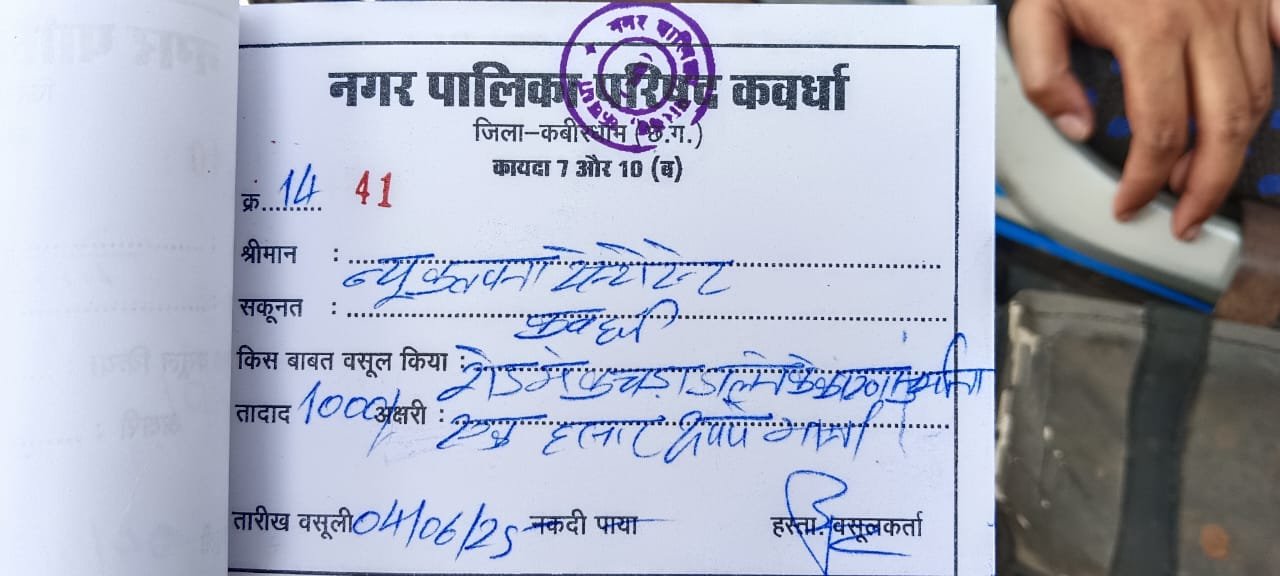 नगर पालिका परिषद कवर्धा
जिला-कबीरधाम (छ.ग.)
कायदा 7 और 10 (ब)
क्र. 14 41
श्रीमान : न्यू कल्पना रेस्टोरेन्ट
सकूनत : कवर्धा
किस बाबत वसूल किया : रोड में कचड़ा डालने के कारण जुर्माना
तादाद 1000/- अक्षरी : एक हजार रूपये मात्र
तारीख वसूली 04/06/25 नकदी पाया हस्ता. वसूलकर्ता